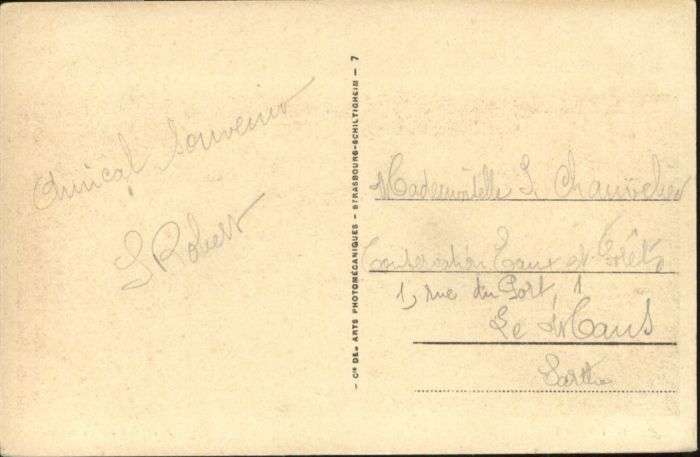 Amical Souvenir
S Robert
— Cie DES ARTS PHOTOMÉCANIQUES — STRASBOURG-SCHILTIGHEIM — 7
Mademoiselle S Chauvelier
Conservation Eaux et Forêts
1, rue du Port, 1
Le Mans
Sarthe